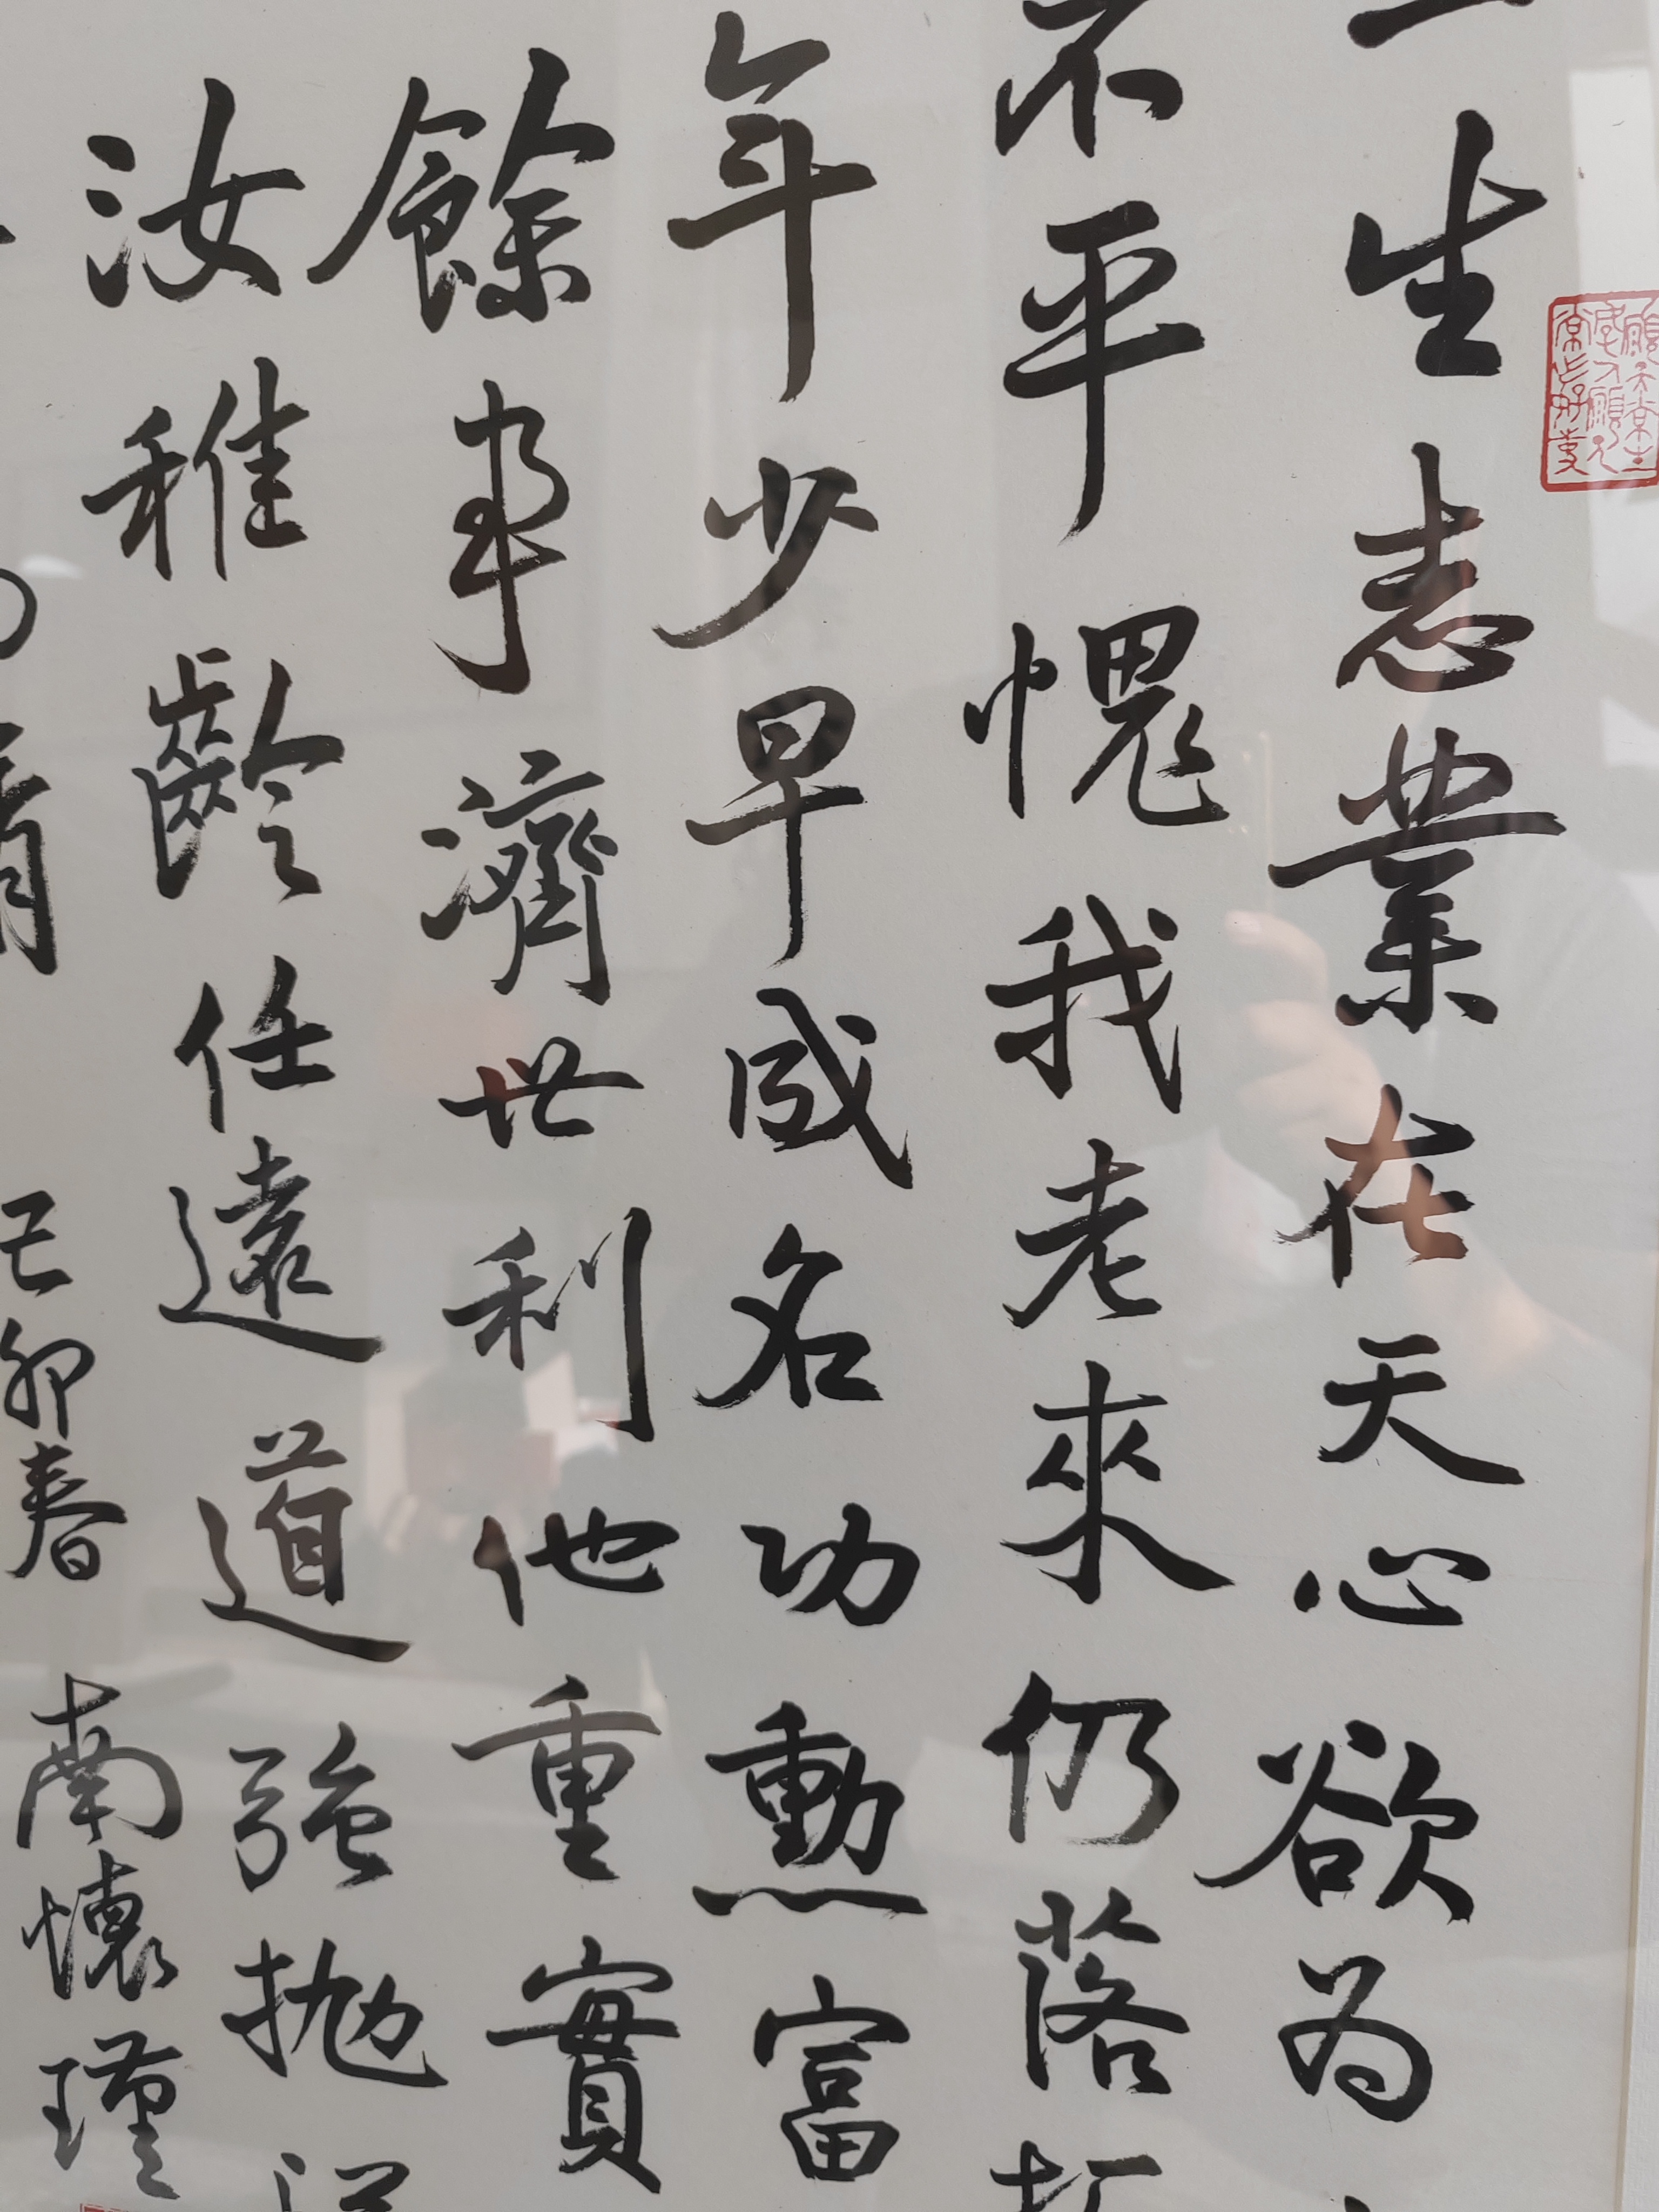 一生志業在天心欲為
不平愧我老來仍落拓
年少早成名功勳富
餘事濟世利他重實
汝稚齡任遠道強拋
己卯春 南懷瑾